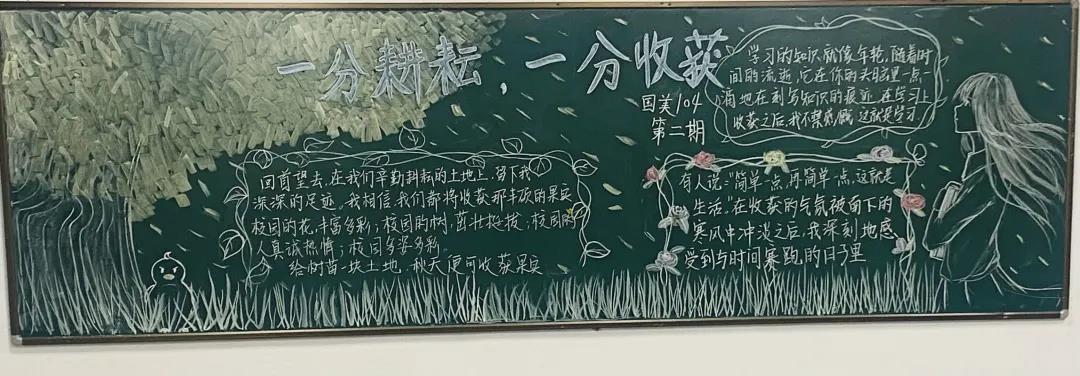 一分耕耘,一分收获
国美104
第二期
学习的知识就像年轮,随着时
间的流逝,它在你的头脑里一点一
滴地在刻写知识的痕迹.在学习上
收获之后,我不禁感慨,这就是学习
回首望去,在我们辛勤耕耘的土地上,留下我
深深的足迹。我相信,我们都将收获那丰硕的果实
校园的花,丰富多彩;校园的树,茁壮挺拔;校园的
人真诚热情;校园多姿多彩。
给树苗一块土地,秋天便可收获果实
有人说:"简单一点,再简单一点,这就是
生活."在收获的气氛被面下的
寒风中冲淡之后,我深刻地感
受到与时间赛跑的日子里